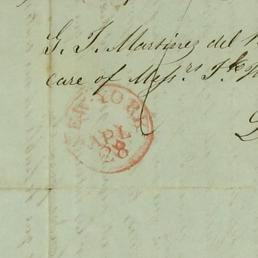 G. T. Martinez del
care of Mess.rs
NEW-YORK
APL
28